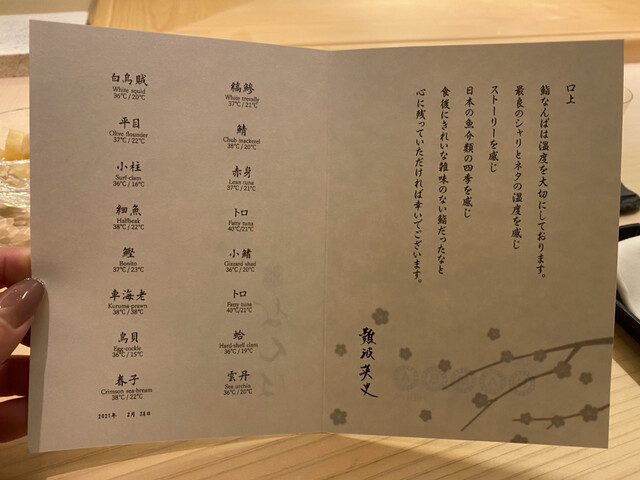 白烏賊
White squid
36℃ / 20℃
平目
Olive flounder
37℃ / 22℃
小柱
Surf-clam
36℃ / 16℃
細魚
Halfbeak
38℃ / 22℃
鰹
Bonito
37℃ / 23℃
車海老
Kuruma-prawn
38℃ / 38℃
鳥貝
Egg-cockle
36℃ / 15℃
春子
Crimson sea-bream
38℃ / 22℃
2021年 2月 28日
縞鯵
White trevally
37℃ / 21℃
鯖
Chub mackerel
38℃ / 20℃
赤身
Lean tuna
37℃ / 21℃
トロ
Fatty tuna
40℃/21℃
小鰭
Gizzard shad
36℃ / 20℃
トロ
Fatty tuna
40℃/21℃
蛤
Hard-shell clam
36℃ / 19℃
雲丹
Sea urchin
36℃ / 20℃
口上
鮨なんばは温度を大切にしております。
最良のシャリとネタの温度を感じ
ストーリーを感じ
日本の魚介類の四季を感じ
食後にきれいな雑味のない鮨だったなと
心に残っていただければ幸いでございます。
難波英史